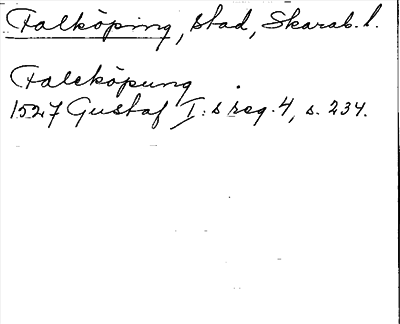 Falköping, stad, Skarab. l.
Falcköpung
1527 Gustaf I:s reg. 4, s. 234.